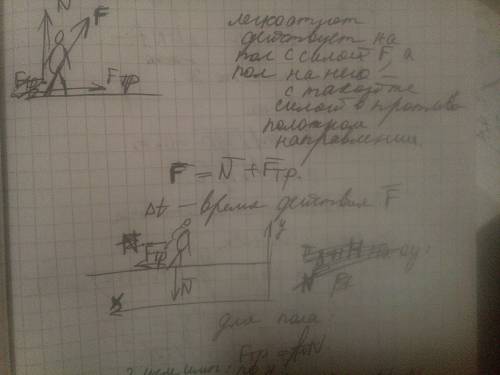 N
F
Fтр
легкоатлет
действует на
пол с силой F, а
пол на него —
с такой же
силой в противо
положном
направлении
F = N + Fтр.
Δt — время действия F
y
Fтр
N
x
для пола:
Fтр = N